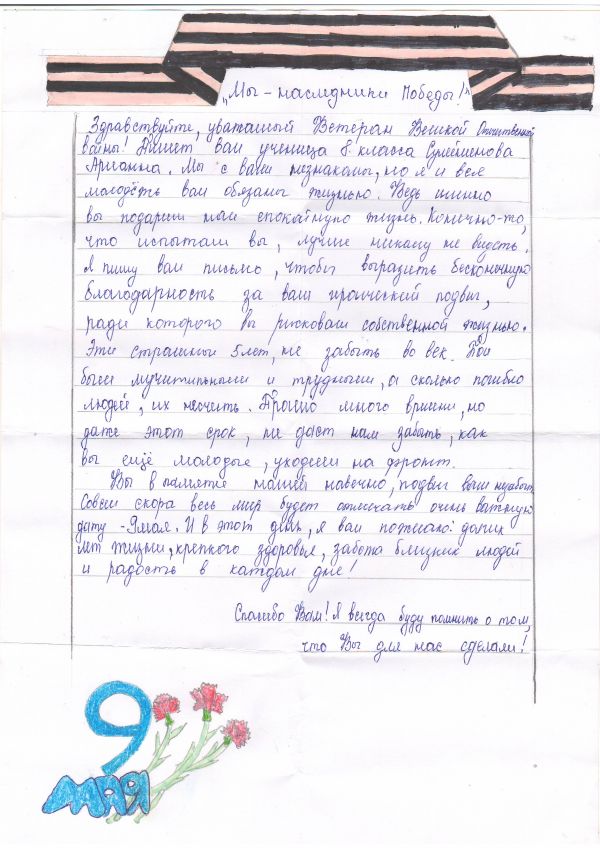 „Мы – наследники Победы!"
Здравствуйте, уважаемый Ветеран Великой Отечественной
войны! Пишет вам ученица 8 класса Сулейменова
Арианна. Мы с вами незнакомы, но я и вся
молодёжь вам обязаны жизнью. Ведь именно
вы подарили нам спокойную жизнь. Конечно-то,
что испытали вы, лучше никому не видеть.
Я пишу вам письмо, чтобы выразить бесконечную
благодарность за ваш героический подвиг,
ради которого вы рисковали собственной жизнью.
Эти страшные 5 лет, не забыть во век. Бои
были мучительными и трудными, а сколько погибло
людей, их несчесть. Прошло много времени, но
даже этот срок, не даст нам забыть, как
вы ещё молодые, уходили на фронт.
Вы в памяти нашей навечно, подвиг ваш незабыт.
Совсем скора весь мир будет отмечать очень важную
дату - 9 мая. И в этот день, я вам пожелаю: долгих
лет жизни, крепкого здоровья, забота близких людей
и радость в каждом дне!
Спасибо Вам! Я всегда буду помнить о том,
что Вы для нас сделали!
9
МАЯ